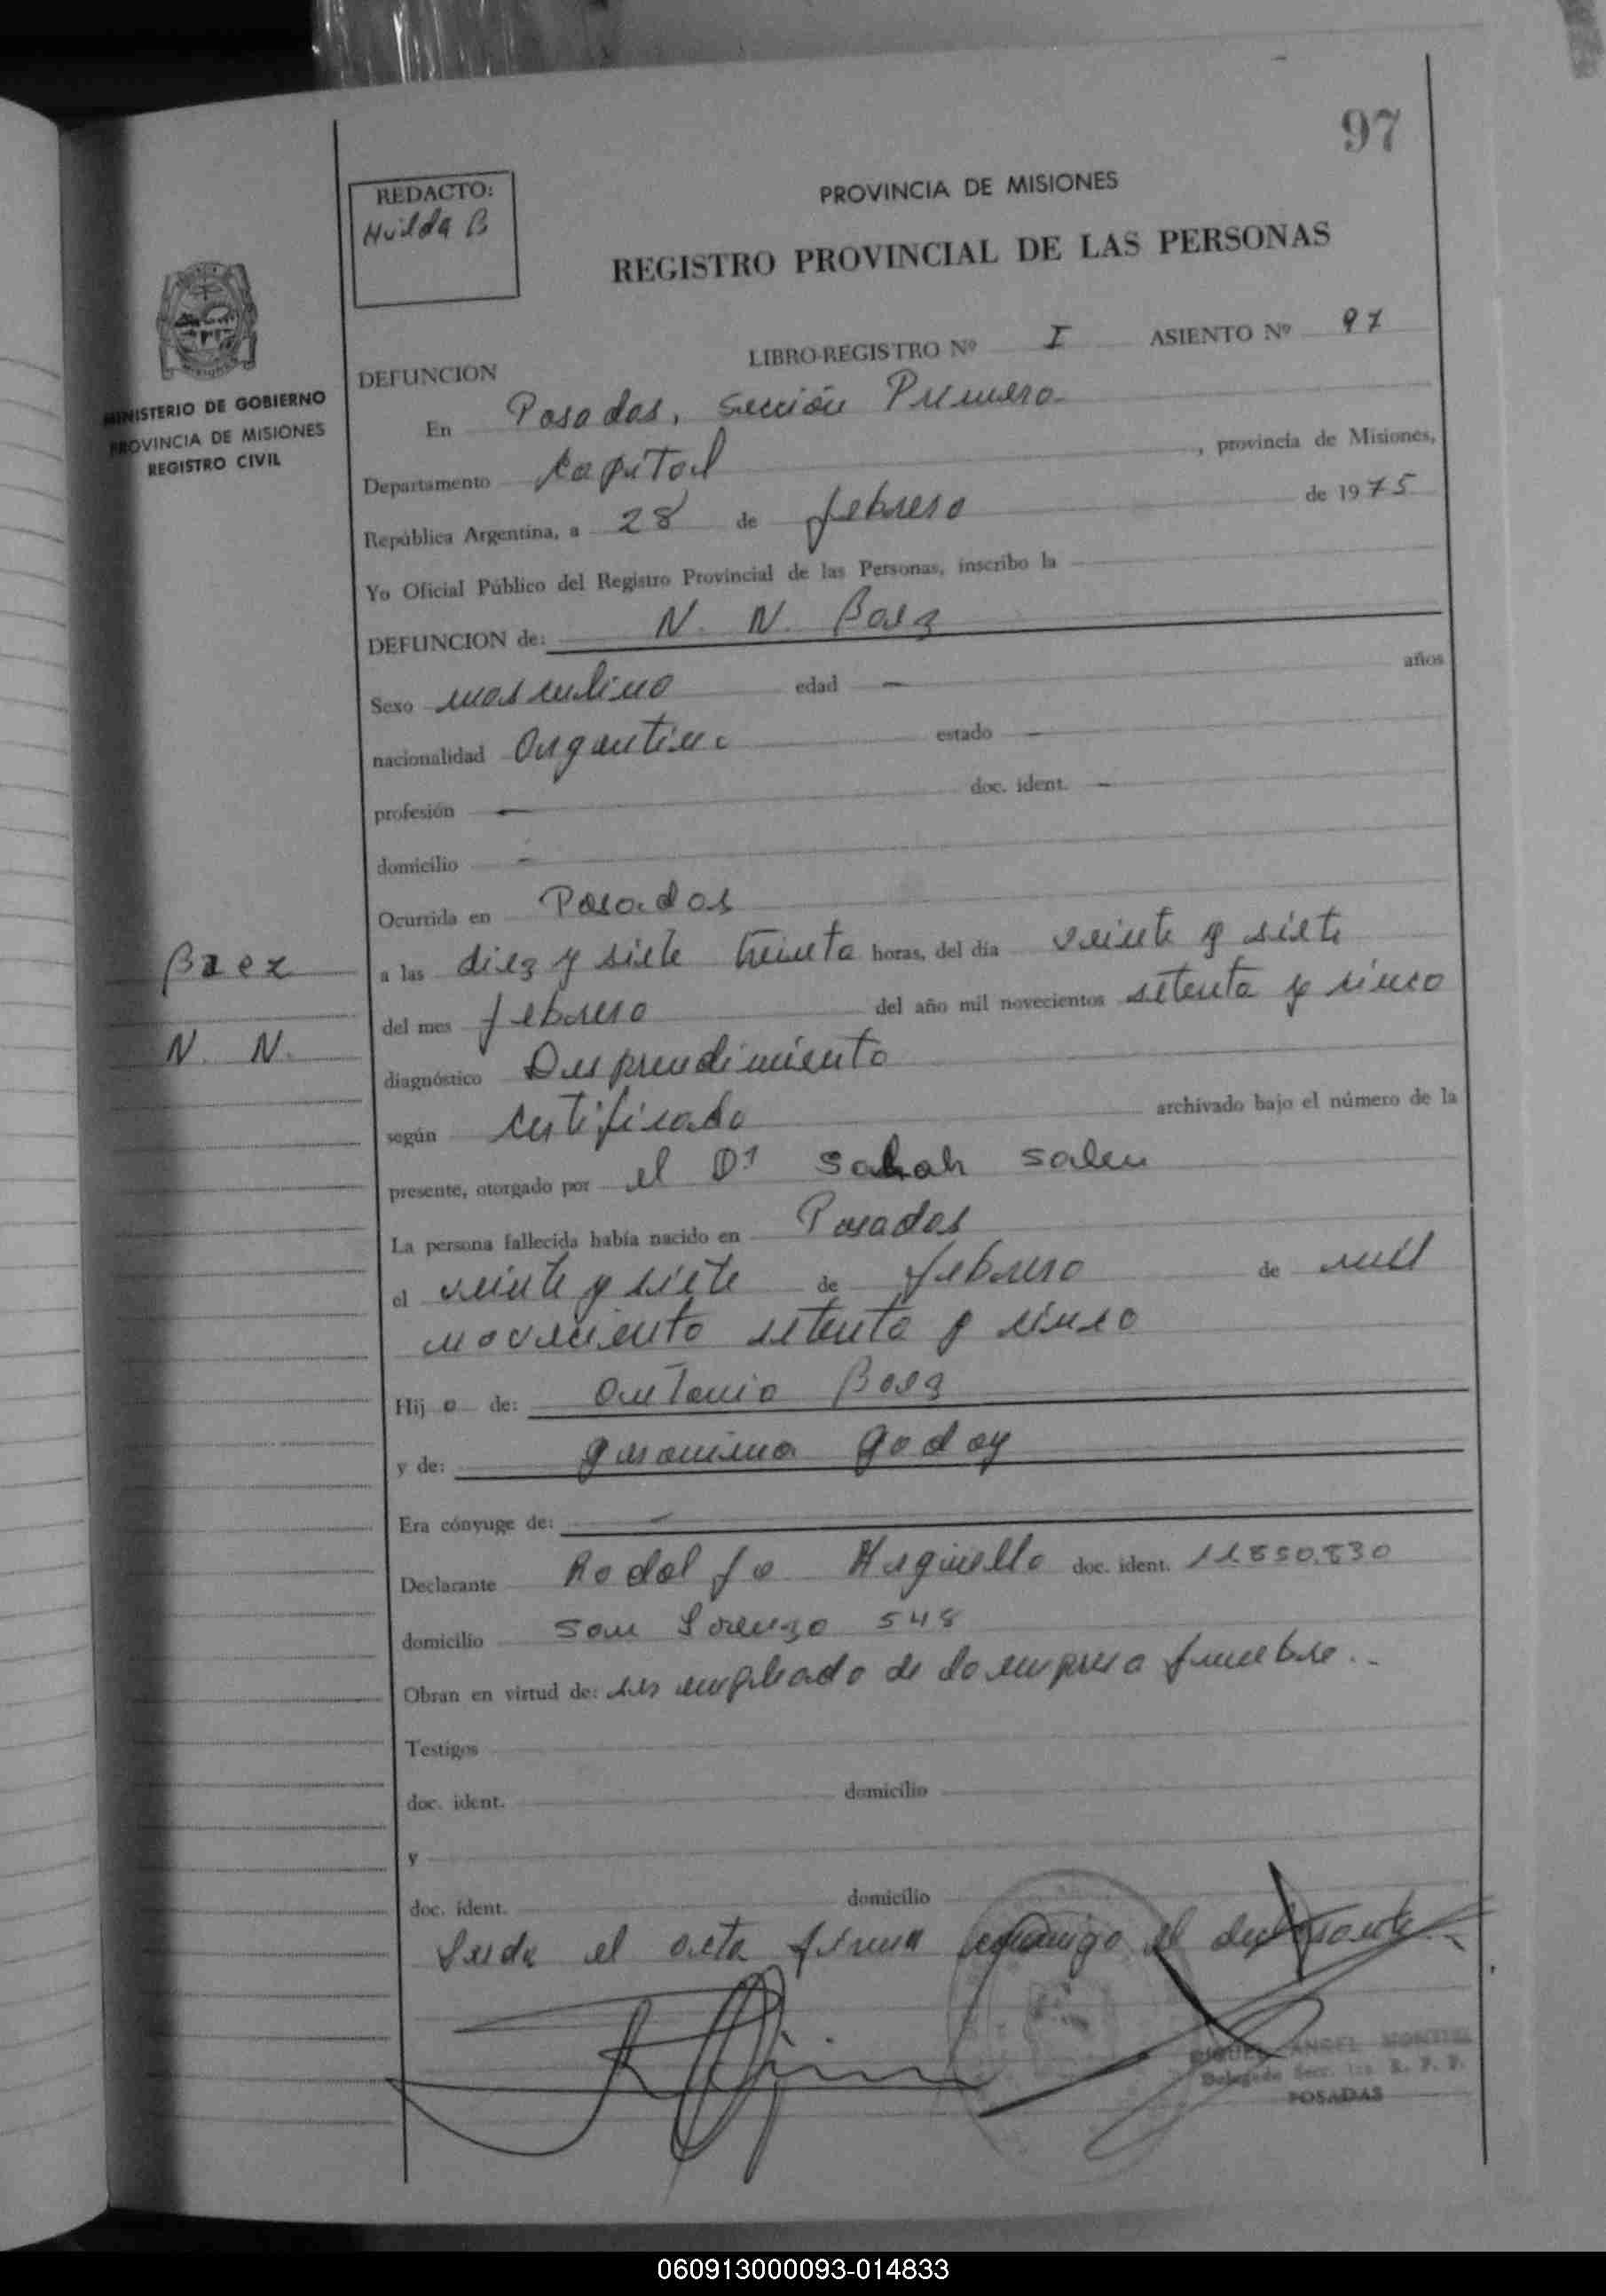 97
REDACTO:
Huilda B
PROVINCIA DE MISIONES
REGISTRO PROVINCIAL DE LAS PERSONAS
MINISTERIO DE GOBIERNO
PROVINCIA DE MISIONES
REGISTRO CIVIL
DEFUNCION LIBRO-REGISTRO Nº I ASIENTO Nº 97
En Posadas, Sección Primera
Departamento Capital, provincia de Misiones,
República Argentina, a 28 de febrero de 1975
Yo Oficial Público del Registro Provincial de las Personas, inscribo la
DEFUNCION de: N. N. Baez
Sexo masculino edad — años
nacionalidad Argentino estado —
profesión — doc. ident. —
domicilio —
Ocurrida en Posadas
Baez
N. N.
a las diez y siete treinta horas, del día veinte y siete
del mes febrero del año mil novecientos setenta y cinco
diagnóstico Desprendimiento
según certificado archivado bajo el número de la
presente, otorgado por el Dr Salen
La persona fallecida había nacido en Posadas
el veinte y siete de febrero de mil
novecientos setenta y cinco
Hijo de: Antonio Baez
y de: Geronima Godoy
Era cónyuge de: —
Declarante Rodolfo doc. ident. 11.850.830
domicilio San Lorenzo 548
Obran en virtud de: ser empleado de la empresa funebre..
Testigos
doc. ident. domicilio
y
doc. ident. domicilio
Leida el acta firma conmigo el declarante
MIGUEL ANGEL
Delegado Secc. 1ra R. P. P.
POSADAS
060913000093-014833